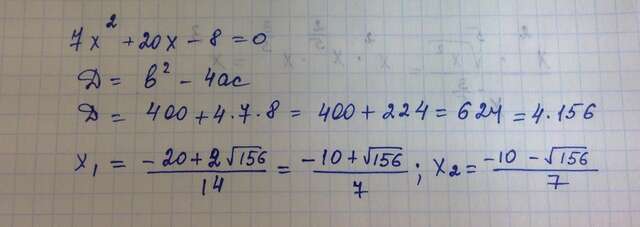 7x² + 20x - 8 = 0
D = b² - 4ac
D = 400 + 4·7·8 = 400 + 224 = 624 = 4·156
x₁ = (-20 + 2√156)/14 = (-10 + √156)/7 ; x₂ = (-10 - √156)/7